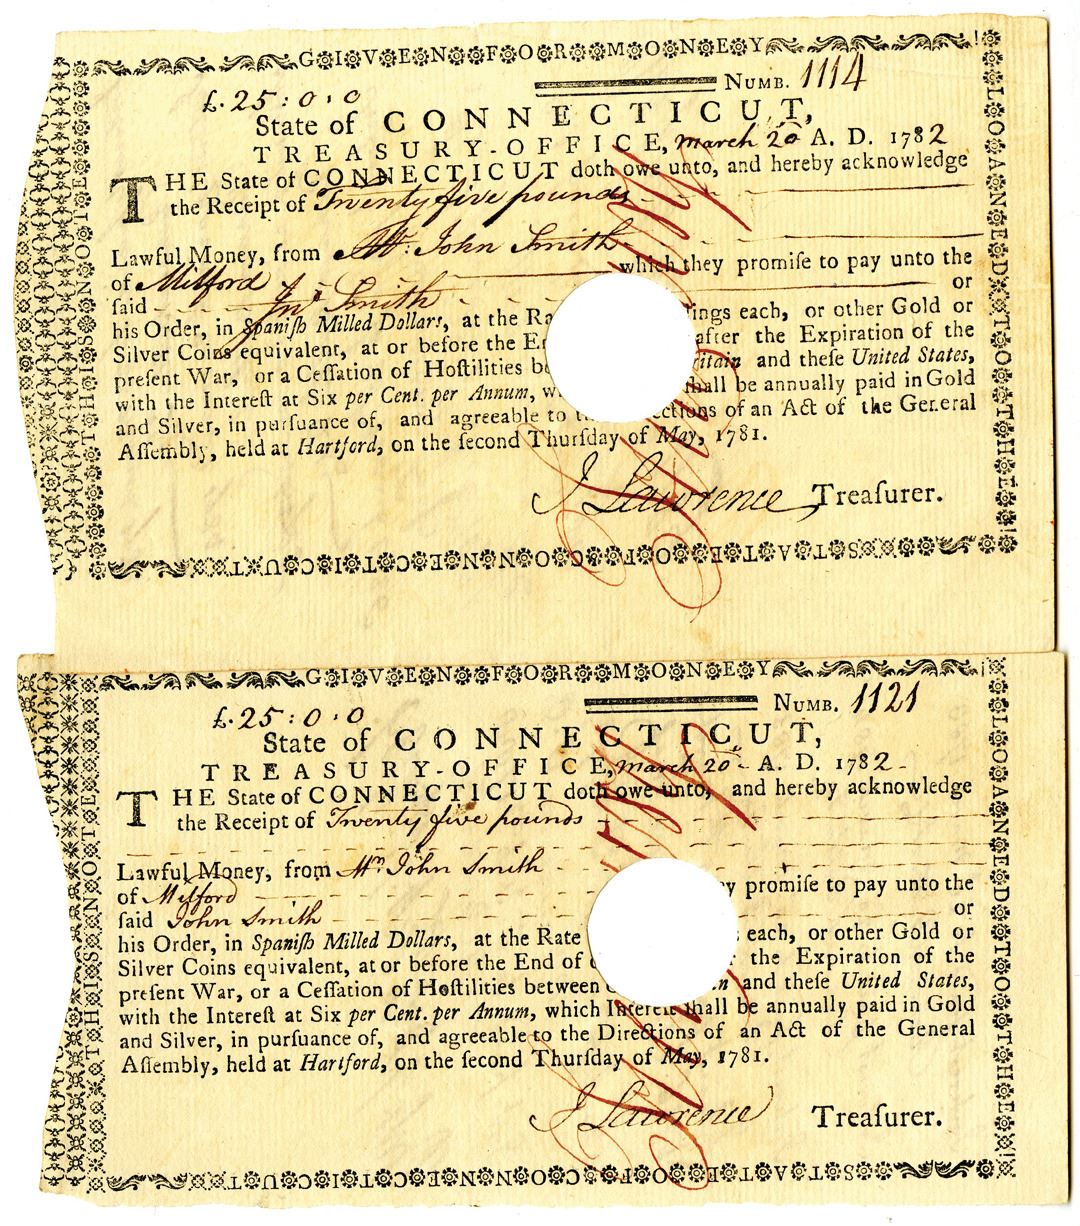 GIVEN FOR MONEY
NUMB. 1114
£. 25 : 0 . 0
State of CONNECTICUT,
TREASURY-OFFICE, March 20 A. D. 1782
THE State of CONNECTICUT doth owe unto, and hereby acknowledge
the Receipt of Twenty five pounds
Lawful Money, from Mr. John Smith
of Milford which they promiſe to pay unto the
ſaid Jnº Smith or
his Order, in Spaniſh Milled Dollars, at the Ra ings each, or other Gold or
Silver Coins equivalent, at or before the En after the Expiration of the
preſent War, or a Ceſſation of Hoſtilities be itain and theſe United States,
with the Intereſt at Six per Cent. per Annum, w ſhall be annually paid in Gold
and Silver, in purſuance of, and agreeable to t ections of an Act of the General
Aſſembly, held at Hartford, on the ſecond Thurſday of May, 1781.
J Lawrence Treaſurer.
STATE OF CONNECTICUT
THIS NOTE
LOANED TO THE
GIVEN FOR MONEY
NUMB. 1121
£. 25 : 0 . 0
State of CONNECTICUT,
TREASURY-OFFICE, March 20 A. D. 1782
THE State of CONNECTICUT doth owe unto, and hereby acknowledge
the Receipt of Twenty five pounds
Lawful Money, from Mr. John Smith
of Milford y promiſe to pay unto the
ſaid John Smith or
his Order, in Spaniſh Milled Dollars, at the Rate each, or other Gold or
Silver Coins equivalent, at or before the End of the Expiration of the
preſent War, or a Ceſſation of Hoſtilities between in and theſe United States,
with the Intereſt at Six per Cent. per Annum, which Intereſt ſhall be annually paid in Gold
and Silver, in purſuance of, and agreeable to the Directions of an Act of the General
Aſſembly, held at Hartford, on the ſecond Thurſday of May, 1781.
J Lawrence Treaſurer.
STATE OF CONNECTICUT
THIS NOTE
LOANED TO THE